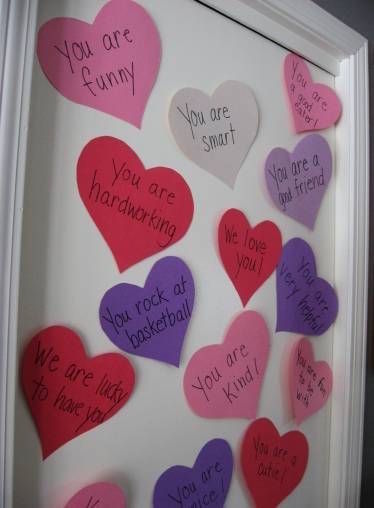 You are
funny
You are
smart
You are
a good
eater!
You are
hardworking
You are a
good friend
We love
you!
You are
very helpful
You rock at
basketball
We are lucky
to have you
You are
kind!
You are fun
to be
with
You are a
cutie!
You are
nice!